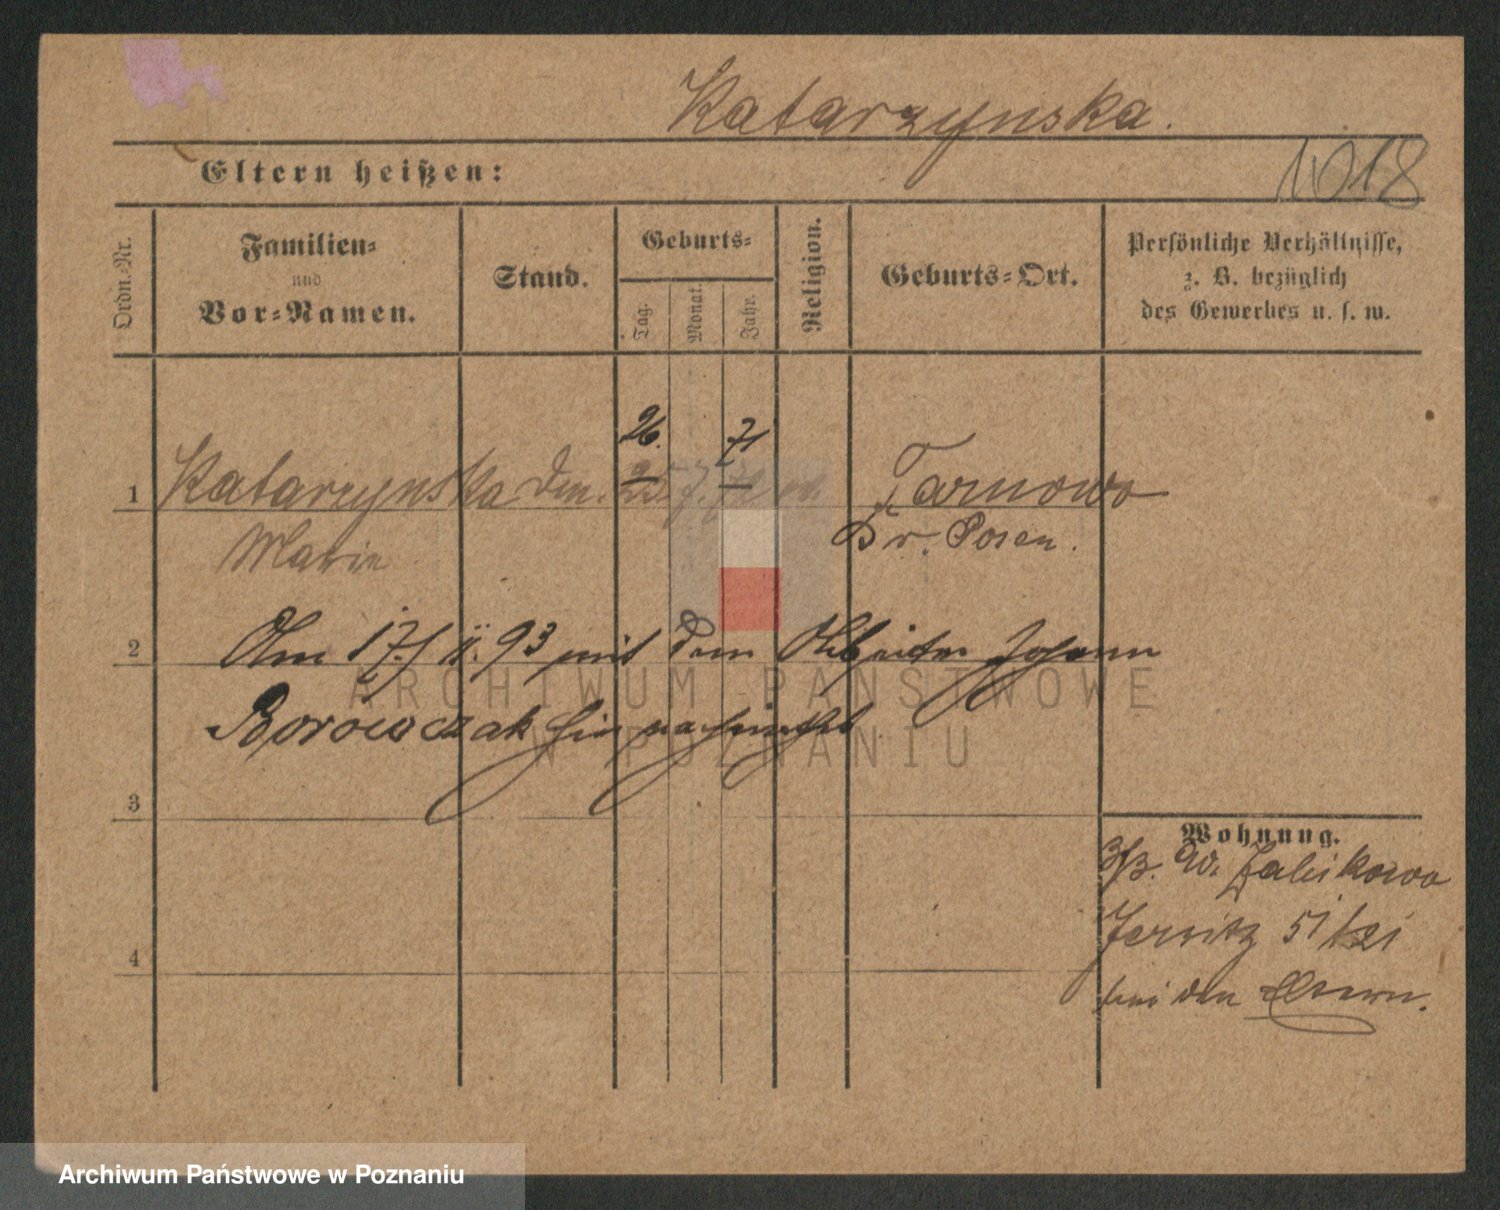 Katarzynska.
Eltern heißen:
1018
Ordn.-Nr.
Familien-
und
Vor-Namen.
Stand.
Geburts-
Tag.
Monat.
Jahr.
Religion.
Geburts-Ort.
Persönliche Verhältnisse,
z. B. bezüglich
des Gewerbes u. s. w.
26. 71
1 Katarzynska 25 7. 72 Tarnowo
Marie Kr. Posen.
2 Am 17/ II. 93 mit dem Arbeiter Johann
Borowczak hier
3
Wohnung.
W. Zabikowo
Jersitz 51/
4
bei den Eltern.
ARCHIWUM PAŃSTWOWE
W POZNANIU
Archiwum Państwowe w Poznaniu